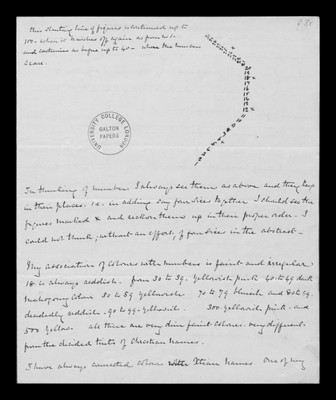 this slanting line of figures is continued up to
100 - when it branches off again as from No 1.
and continues as begun up to 40 - when the numbers
cease.
UNIVERSITY COLLEGE LONDON
GALTON
PAPERS
20
19
18
17
16
15
14
13
12
In thinking of numbers I always see them as above and they keep
in their places. i.e. in adding say four fives together I should see the
figures marked x and reckon them up in their proper order. I
could not think, without an effort, of four fives in the abstract.
My association of colours with numbers is faint and irregular
18 is always reddish. from 30 to 39. Yellowish pink 40 to 49 dark
Mahogany colour 50 to 59 Yellowish 70 to 79 bluish and 80 to 89
decidedly reddish. 90 to 99 - Yellowish. 300 yellowish pink - and
500 Yellow. all these are very dim faint colours. very different
from the decided tints of Christian names.
I have always connected colour with Xtian names. one of my